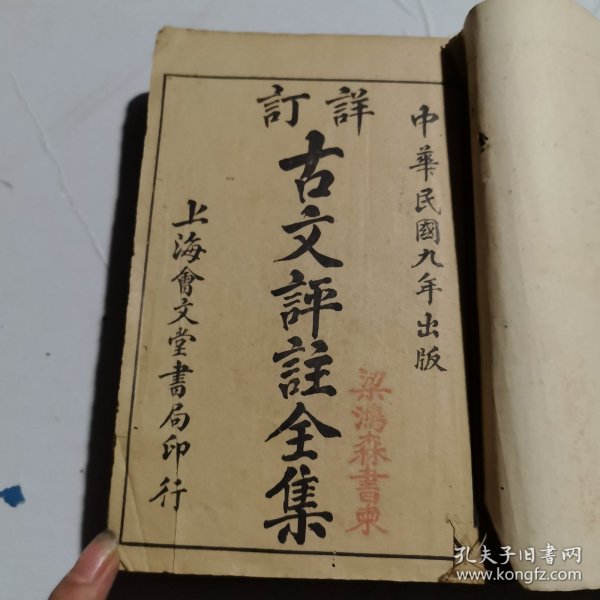 中華民國九年出版
詳訂
古文評註全集
上海會文堂書局印行
梁鴻森書柬
孔夫子旧书网
www.kongfz.com